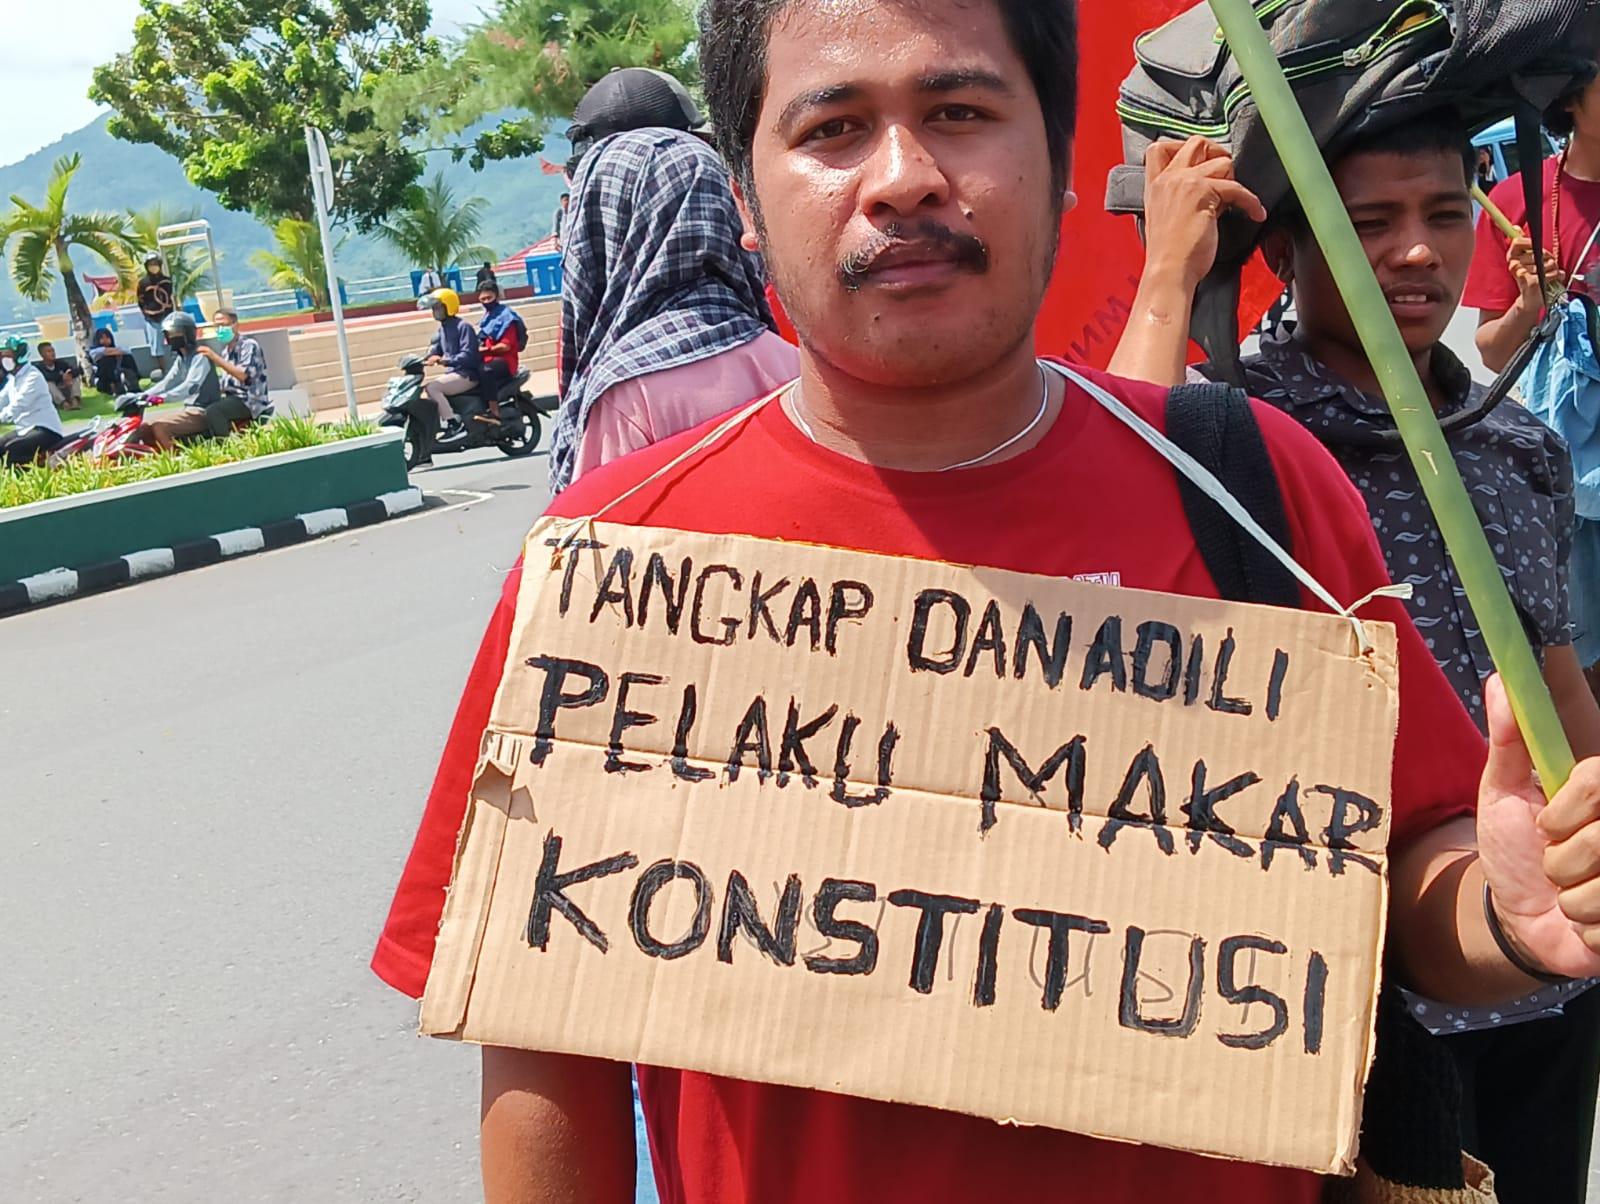 TANGKAP DAN ADILI
PELAKU MAKAR
KONSTITUSI